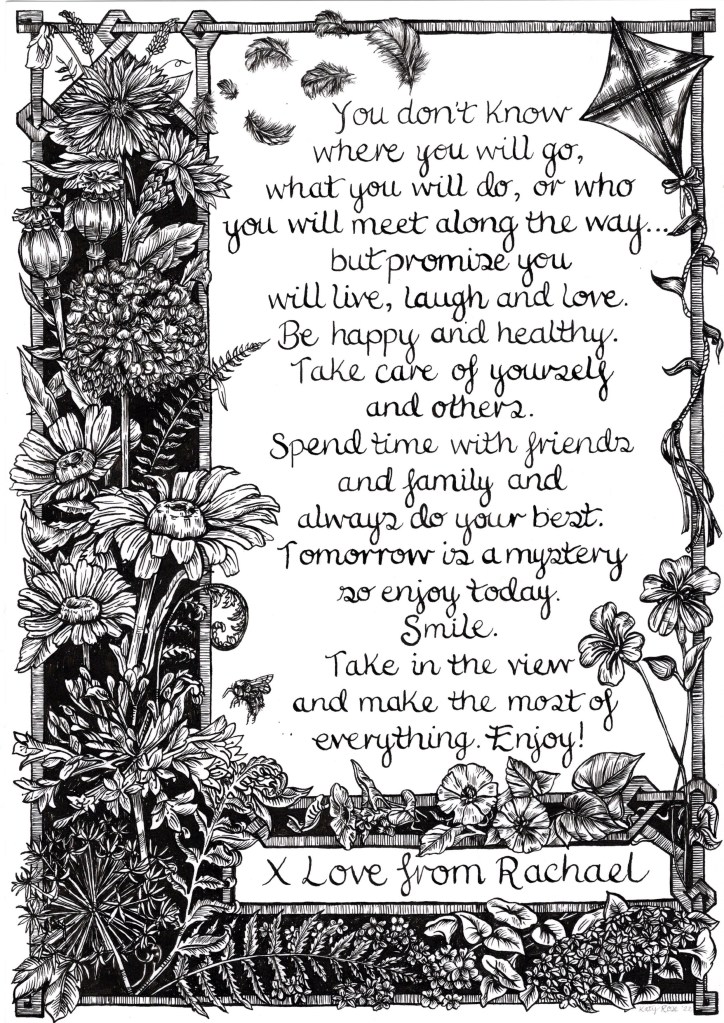 You don't know
where you will go,
what you will do, or who
you will meet along the way...
but promise you
will live, laugh and love.
Be happy and healthy.
Take care of yourself
and others.
Spend time with friends
and family and
always do your best.
Tomorrow is a mystery
so enjoy today.
Smile.
Take in the view
and make the most of
everything. Enjoy!
X Love from Rachael